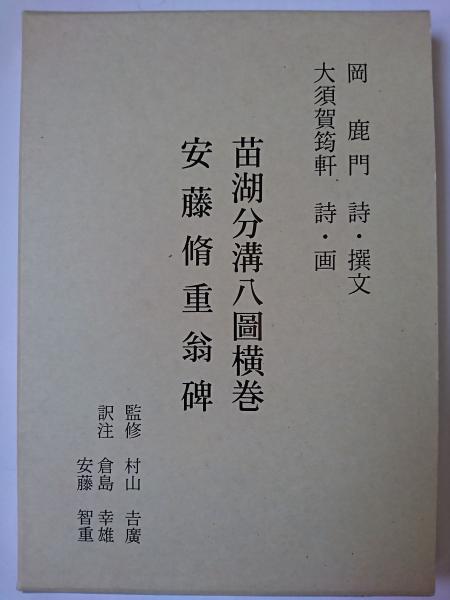 岡 鹿門 詩・撰文
大須賀筠軒 詩・画
苗湖分溝八圖横巻
安藤脩重翁碑
監修 村山 吉廣
訳注 倉島 幸雄
安藤 智重